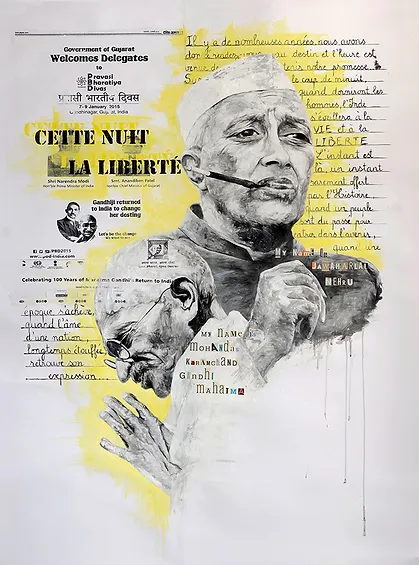 Government of Gujarat
Welcomes Delegates
to
Pravasi
Bharatiya
Divas
प्रवासी भारतीय दिवस
7-9 January 2015
Gandhinagar, Gujarat, India
CETTE NUIT
LA LIBERTÉ
Shri Narendra Modi
Hon'ble Prime Minister of India
Smt. Anandiben Patel
Hon'ble Chief Minister of Gujarat
Gandhiji returned
to India to change
her destiny
Let's be the change
PBD2015
Celebrating 100 Years of Mahatma Gandhi's Return to India
époque s'achève,
quand l'âme
d'une nation,
longtemps étouffée,
retrouve son
expression...
Il y a de nombreuses années, nous avons
donné rendez-vous au destin et l'heure est
venue de tenir notre promesse.
le coup de minuit,
quand dormiront les
hommes, l'Inde
s'éveillera à la
VIE et à la
LIBERTÉ
L'instant est
là, un instant
rarement offert
par l'Histoire
quand un peuple
sort du passé pour
entrer dans l'avenir,
quand une
MY NAME IS
JAWAHARLAL
NEHRU
MY NAME IS
MOHANDAS
KARAMCHAND
GANDHI
MAHATMA